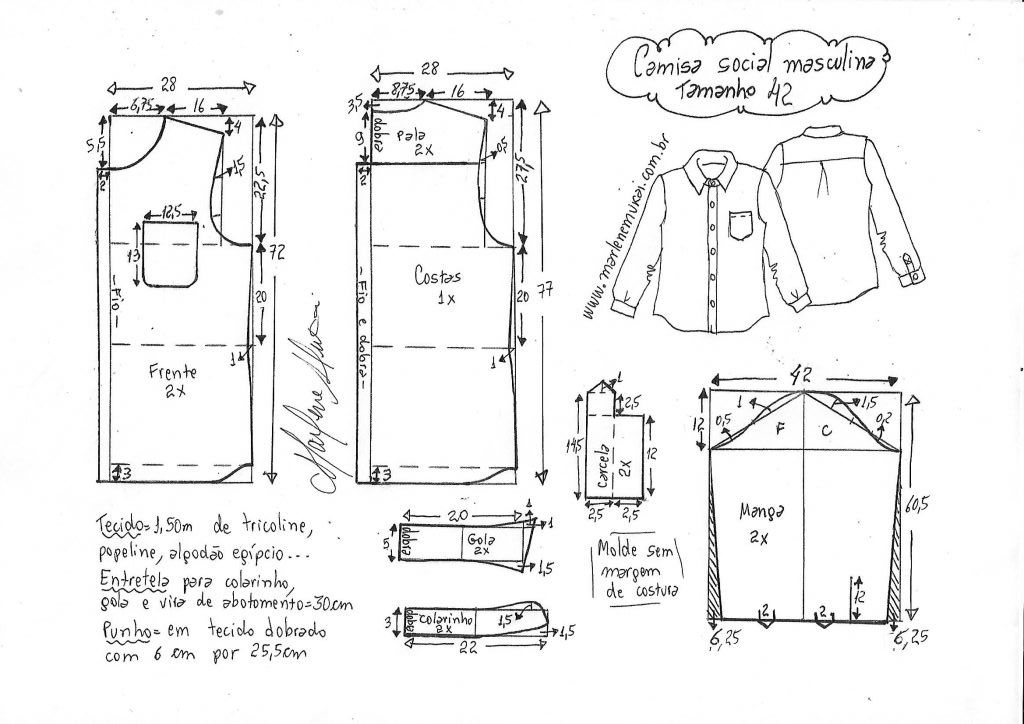 Camisa social masculina
Tamanho 42
www.marlenemukai.com.br
28
6,75
16
5,5
4
1,5
2
22,5
12,5
13
72
-Fio-
20
1
Frente
2x
3
28
8,75
16
3,5
4
dobra
Pala
2x
9
0,5
2
27,5
Costas
1x
-Fio e dobra-
20
77
1
3
Marlene Mukai
1
2,5
14,5
Carcela
2x
12
2,5
2,5
42
1
1,5
12
0,5
F
C
0,2
Manga
2x
60,5
12
2
2
6,25
6,25
Tecido=1,50m de tricoline,
popeline, algodão egípcio...
Entretela para colarinho,
gola e vira de abotomento=30cm
Punho=em tecido dobrado
com 6 cm por 25,5cm
20
1
1
5
dobra
Gola
2x
1,5
3
dobra
colarinho
2x
1,5
1,5
22
Molde sem
margem
de costura